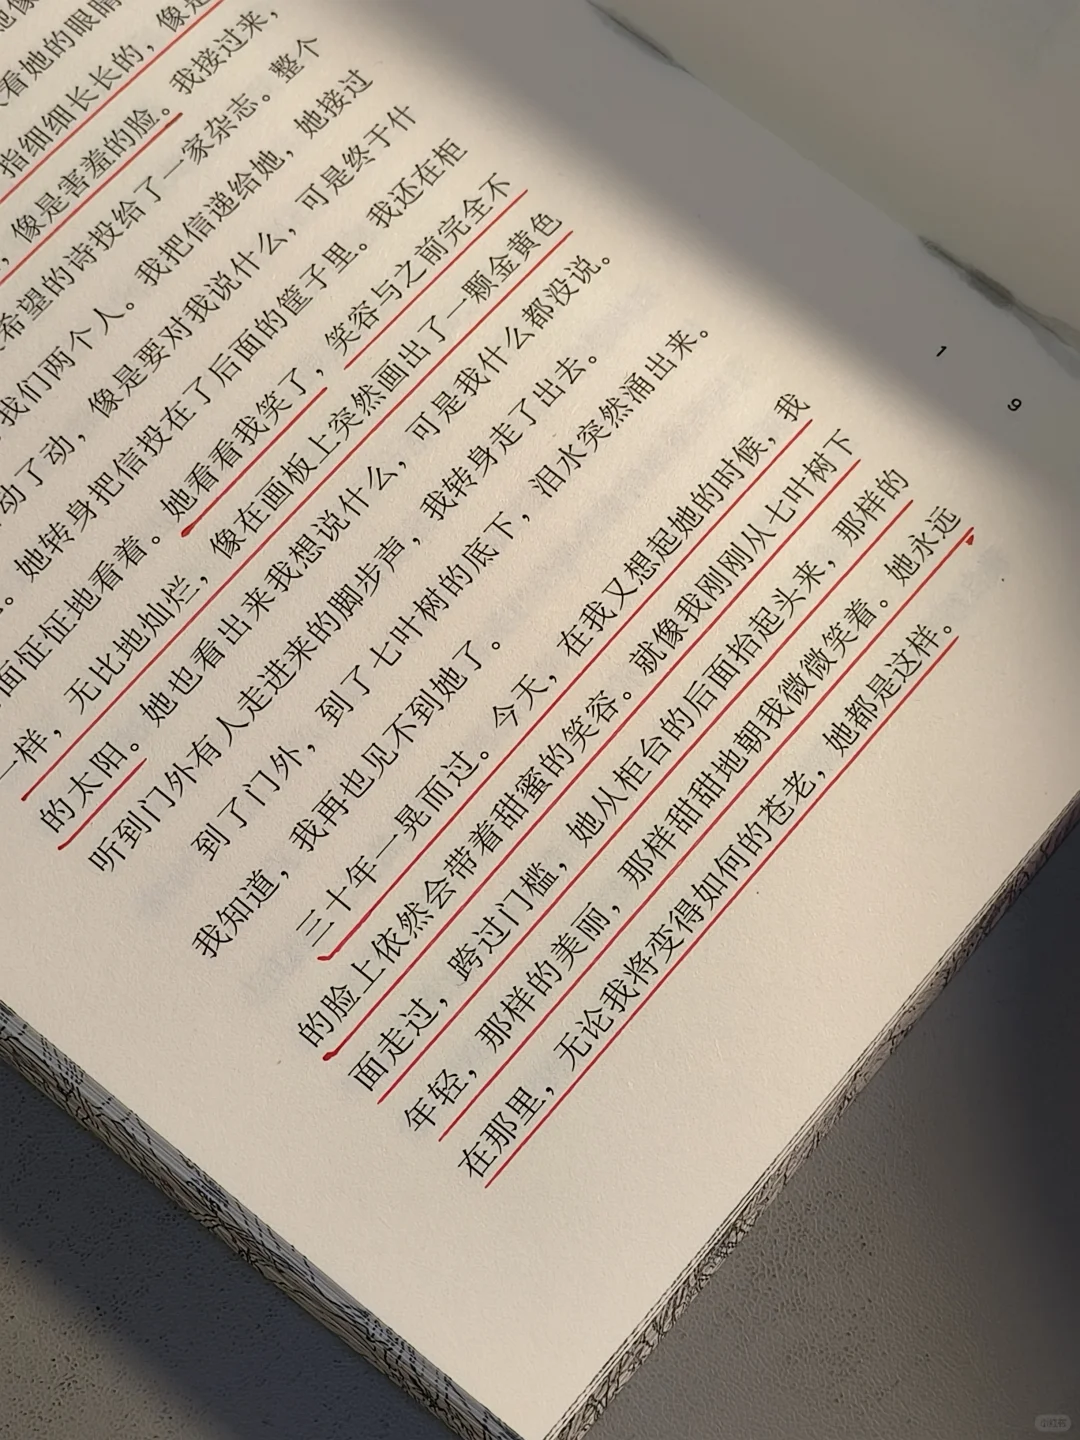 她像
看她的眼睛
指细细长长的，像是
，像是害羞的脸。我接过来，
希望的诗投给了一家杂志。整个
我们两个人。我把信递给她，她接过
动了动，像是要对我说什么，可是终于什
。她转身把信投在了后面的筐子里。我还在柜
面怔怔地看着。她看看我笑了，笑容与之前完全不
一样，无比地灿烂，像在画板上突然画出了一颗金黄色
的太阳。她也看出来我想说什么，可是我什么都没说。
听到门外有人走进来的脚步声，我转身走了出去。
到了门外，到了七叶树的底下，泪水突然涌出来。
我知道，我再也见不到她了。
三十年一晃而过。今天，在我又想起她的时候，我
的脸上依然会带着甜蜜的笑容。就像我刚刚从七叶树下
面走过，跨过门槛，她从柜台的后面抬起头来，那样的
年轻，那样的美丽，那样甜甜地朝我微微笑着。她永远
在那里，无论我将变得如何的苍老，她都是这样。
1
9
小红书